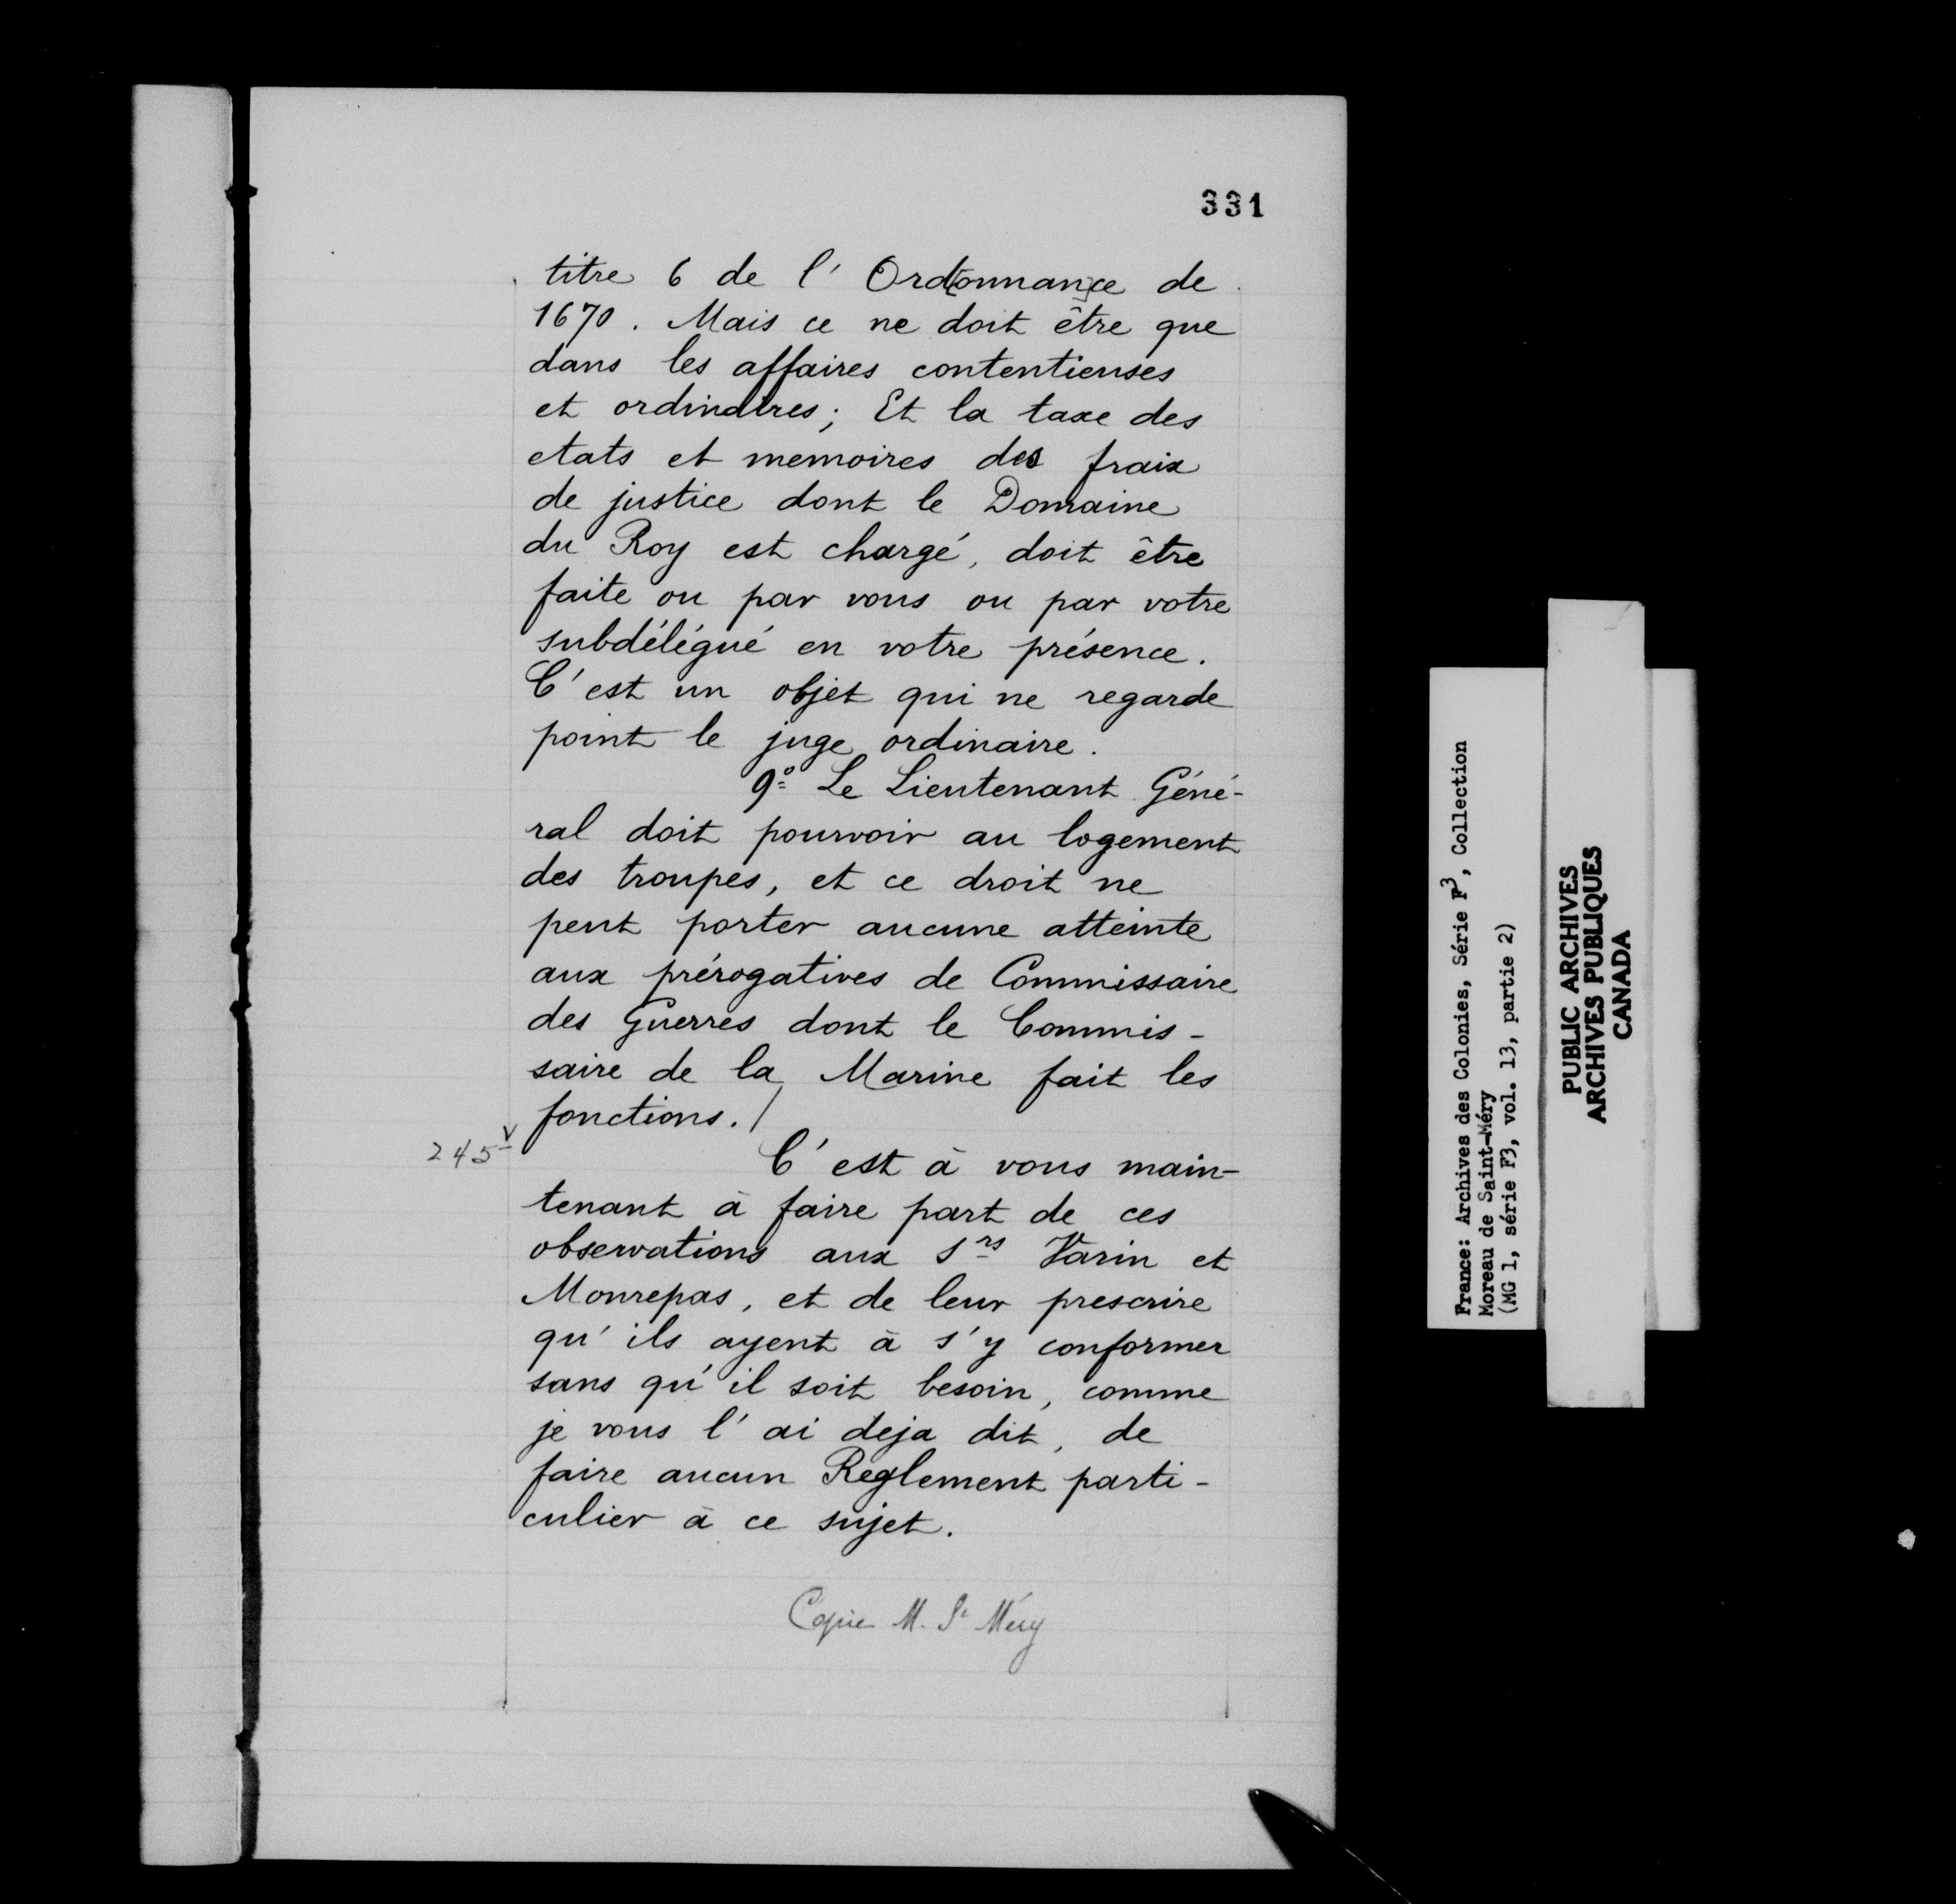 331
titre 6 de l' Ord[onnan]ce de
1670. Mais ce ne doit être que
dans les affaires contentieuses
et ordinaires; Et la taxe des
etats et memoires des fraix
de justice dont le Domaine
du Roy est chargé, doit être
faite ou par vous ou par votre
subdélégué en votre présence.
C'est un objet qui ne regarde
point le juge ordinaire.
9º Le Lieutenant Géné-
ral doit pourvoir au logement
des troupes, et ce droit ne
peut porter aucune atteinte
aux prérogatives de Commissaire
des Guerres dont le Commis-
saire de la Marine fait les
fonctions. /
245 v
C'est à vous main-
tenant à faire part de ces
observations aux Srs Varin et
Monrepas, et de leur prescrire
qu'ils ayent à s'y conformer
sans qu'il soit besoin, comme
je vous l'ai deja dit, de
faire aucun Reglement parti-
culier à ce sujet.
Copie M. St Méry
France: Archives des Colonies, Série F3, Collection
Moreau de Saint-Méry
(MG 1, série F3, vol. 13, partie 2)
PUBLIC ARCHIVES
ARCHIVES PUBLIQUES
CANADA